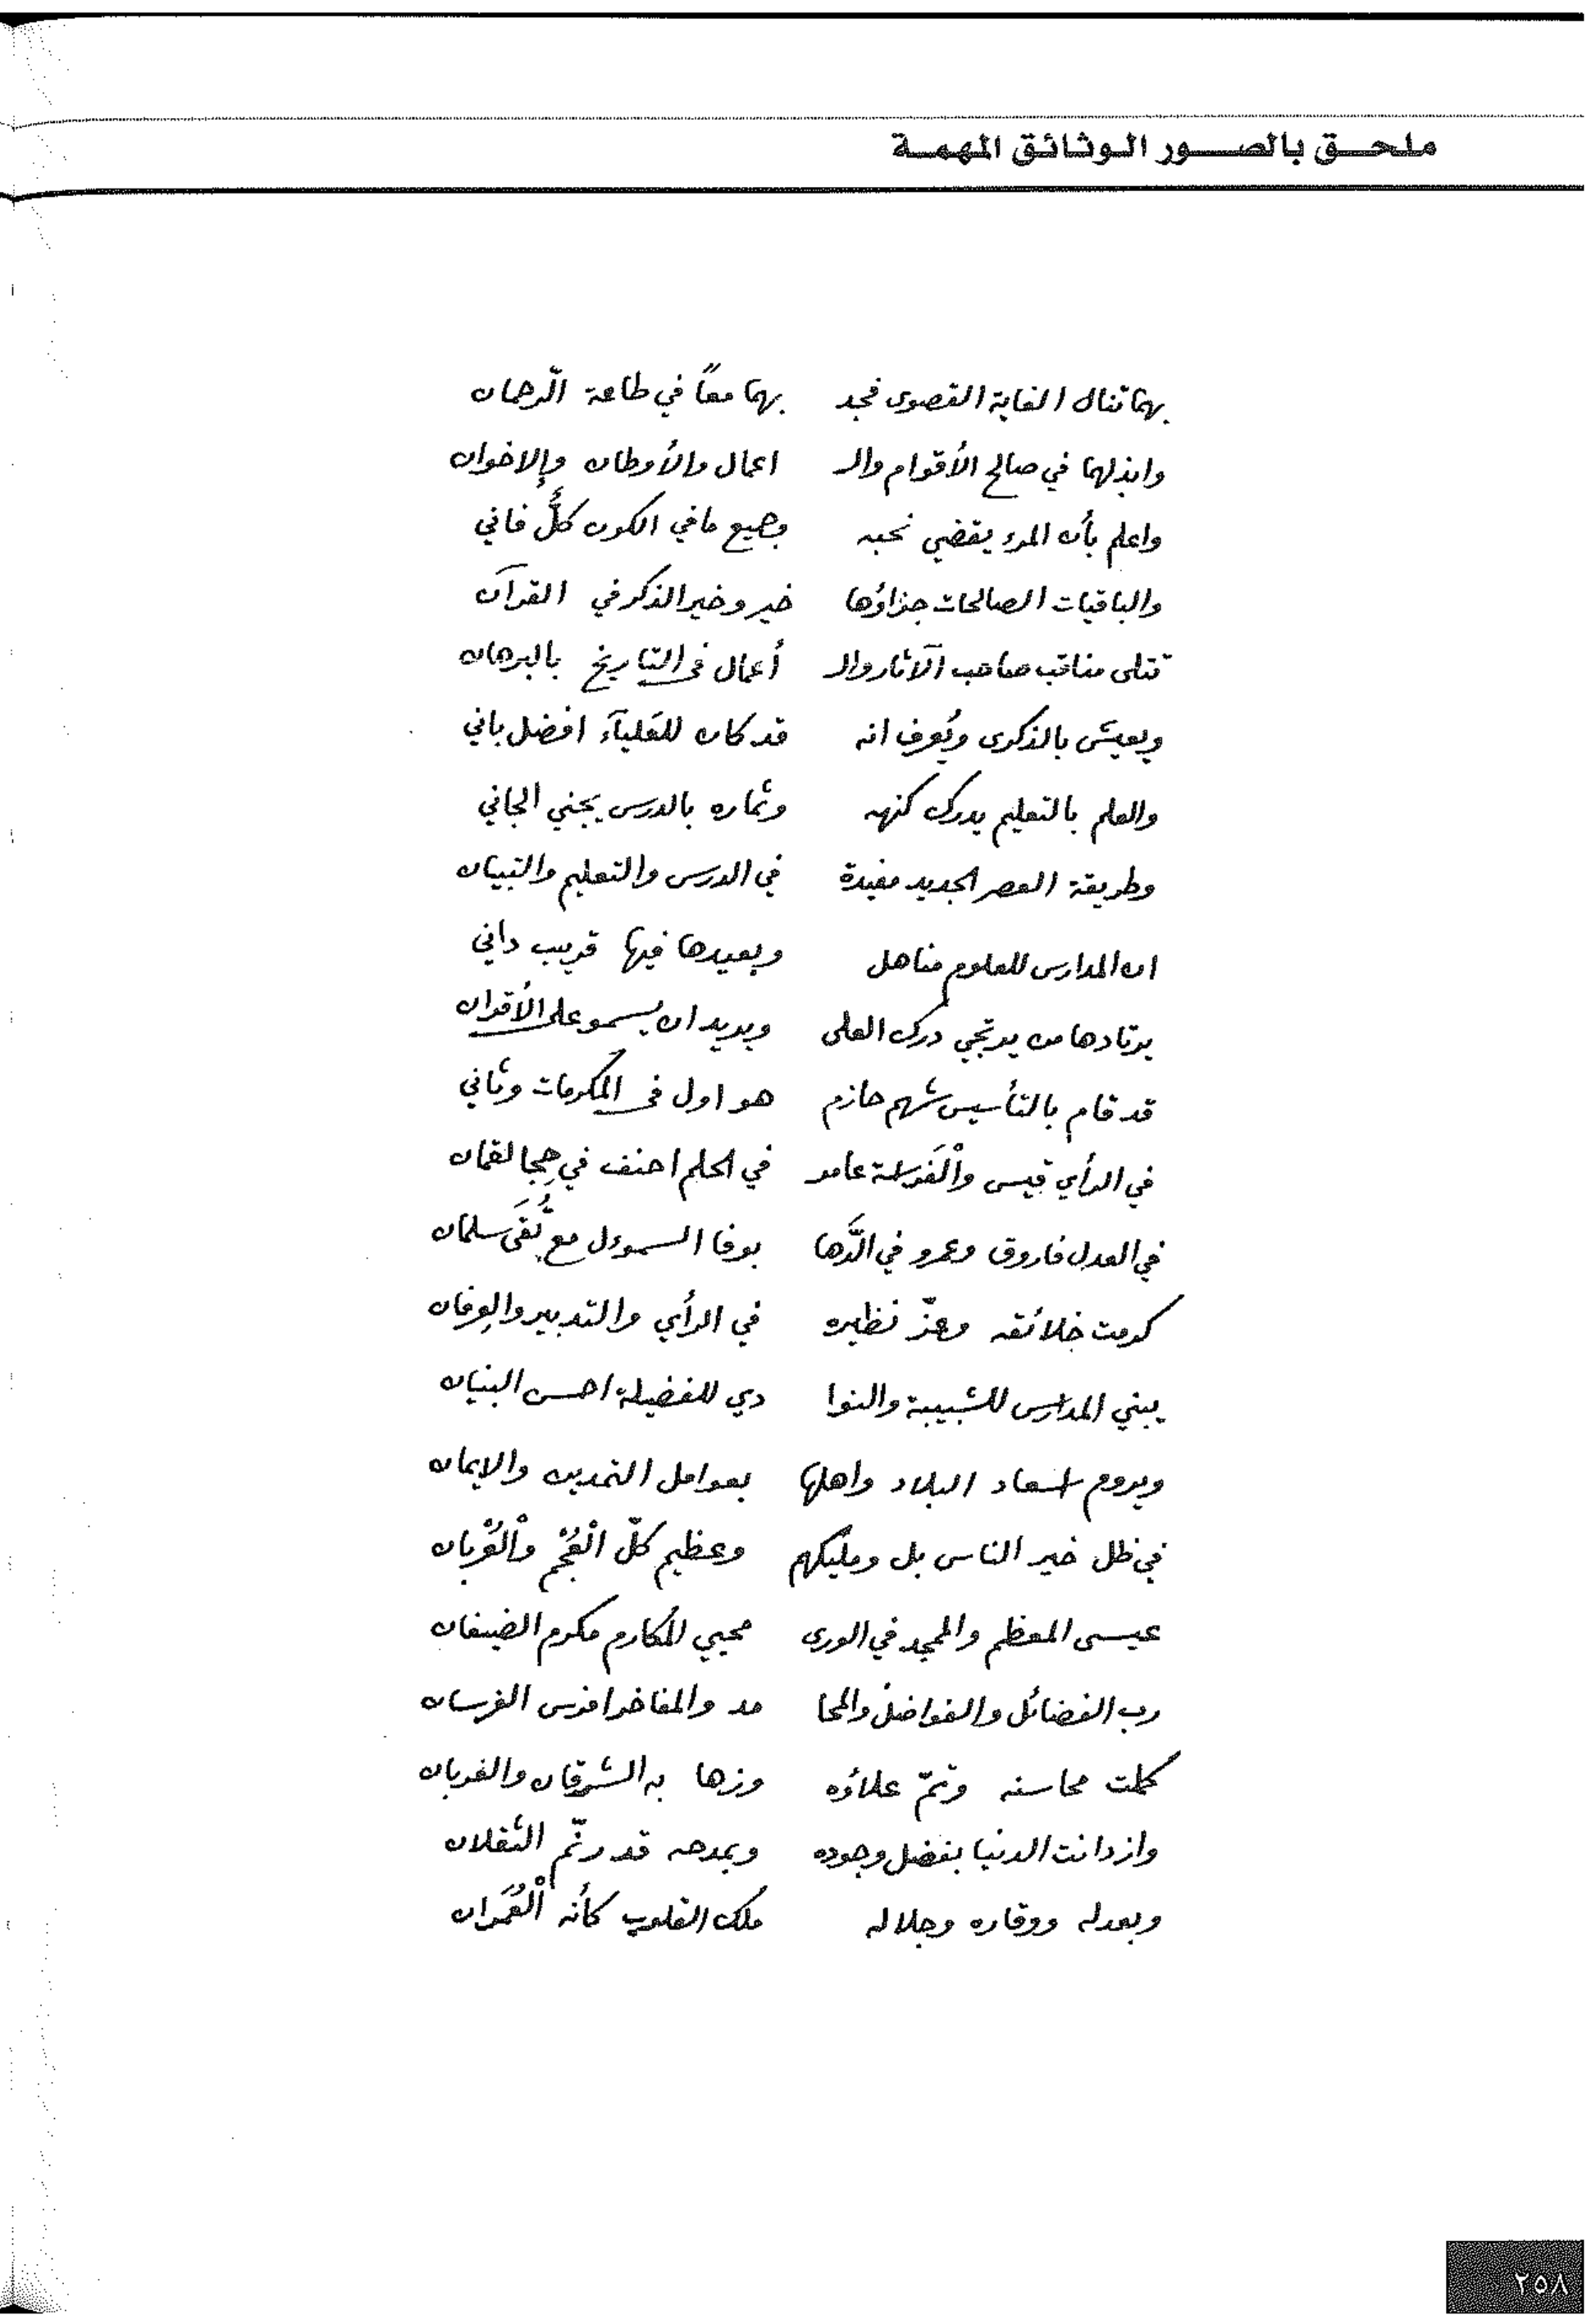 ملحق بالصور الوثائق المهمة
بهما تنال الغاية القصوى فجد بهما معاً في طاعة الرّحمان
وابذلهما في صالح الأقوام وال اعمال والأوطان والإخوان
واعلم بأن المرء يقضي نحبه وجميع مافي الكون كلٌّ فاني
والباقيات الصالحات جزاؤها خير وخير الذكر في القرآن
تتلى مناقب صاحب الآثار وال أعمال في التاريخ بالبرهان
ويعيش بالذكرى ويُعرف انه قد كان للعَليآء افضل باني
والعلم بالتعليم يدرك كنهه وثماره بالدرس يجني الجاني
وطريقة العصر الجديد مفيدة في الدرس والتعليم والتبيان
ان المدارس للعلوم مناهل وبعيدها فيها قريب داني
يرتادها من يرتجي درك العلى ويريد ان يسمو على الأقران
قد قام بالتأسيس شهم حازم هو اول في المكرمات وثاني
في الرأي قيس والْفَراسة عامر في الحلم احنف في حِجا لقمان
في العدل فاروق وعمرو في الدَّها بوفا السموءل مع تُقَى سلمان
كرمت خلائقه وعزّ نظيره في الرأي والتدبير والعِرفان
يبني المدارس للشبيبة والنوا دي للفضيلة احسن البنيان
ويروم اسعاد البلاد واهلها بعوامل التمدين والايمان
في ظل خير الناس بل ومليكهم وعظيم كلّ الْعُجْم والْعُرْبان
عيسى المعظم والممجد في الورى محيي المكارم مكرم الضيفان
رب الفضائل والفواضل والمحا مد والمفاخر افرس الفرسان
كملت محاسنه وتمّ علاؤه وزها به الشرقان والغربان
وازدانت الدنيا بفضل وجوده وبمدحه قد رنّم الثقلان
وبعدله ووقاره وجلاله ملك القلوب كأنه الْعُمَران
٢٥٨